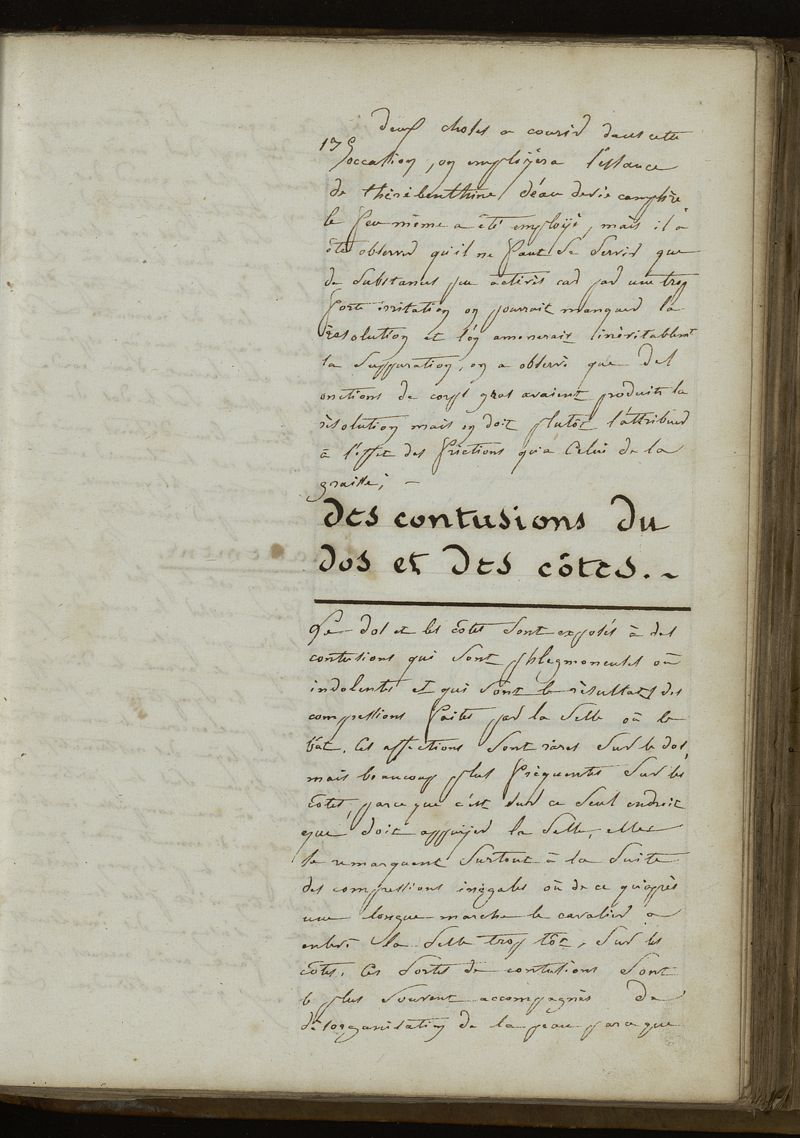 deux choses a courir dans cette
175
occasion, on employera l'essance
de thérébenthine, d'eau devie camphré
le feu même a été employé, mais il a
été observer qu'il ne faut se servir que
de substances peu activés car par une trop
forte irritation on pourrait manquer la
résolution et l'on amenerait inévitablemt
la suppuration, on a observé que des
onctions de corps gras avaient produits la
résolution mais on doit plutôt l'attribuer
à l'effet des frictions qu'a celui de la
graisse; —
des contusions du
dos et des côtes. ~
Le dos et les côtes sont exposés à des
contusions qui sont phlegmoneuses où
indolentes et qui sont le résultats des
compressions faites par la selle où le
bât. Ces affections sont rares sur le dos,
mais beaucoup plus fréquentes sur les
côtes, parceque c'est sur ce seul endroit
que doit appuyer la selle, elles
se remarquent surtout à la suite
des compressions inégales où de ce qu'après
une longue marche le cavalier a
enlevé la selle trop tôt, sur les
côtes. Ces sortes de contusions sont
le plus souvent accompagnés de
désorganisation de la peau parceque